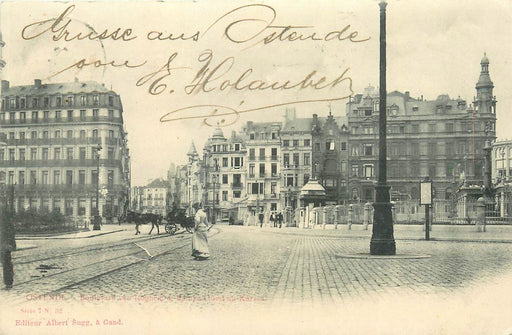 Grüsse aus Ostende
von E. Holaubek
OSTENDE
Série 7 N. 32
Editeur Albert Sugg, à Gand.